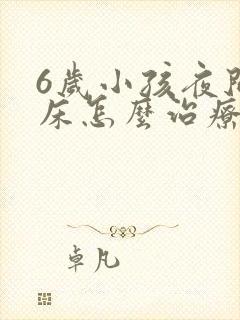 6歲小孩夜間
床怎麼治療
卓凡